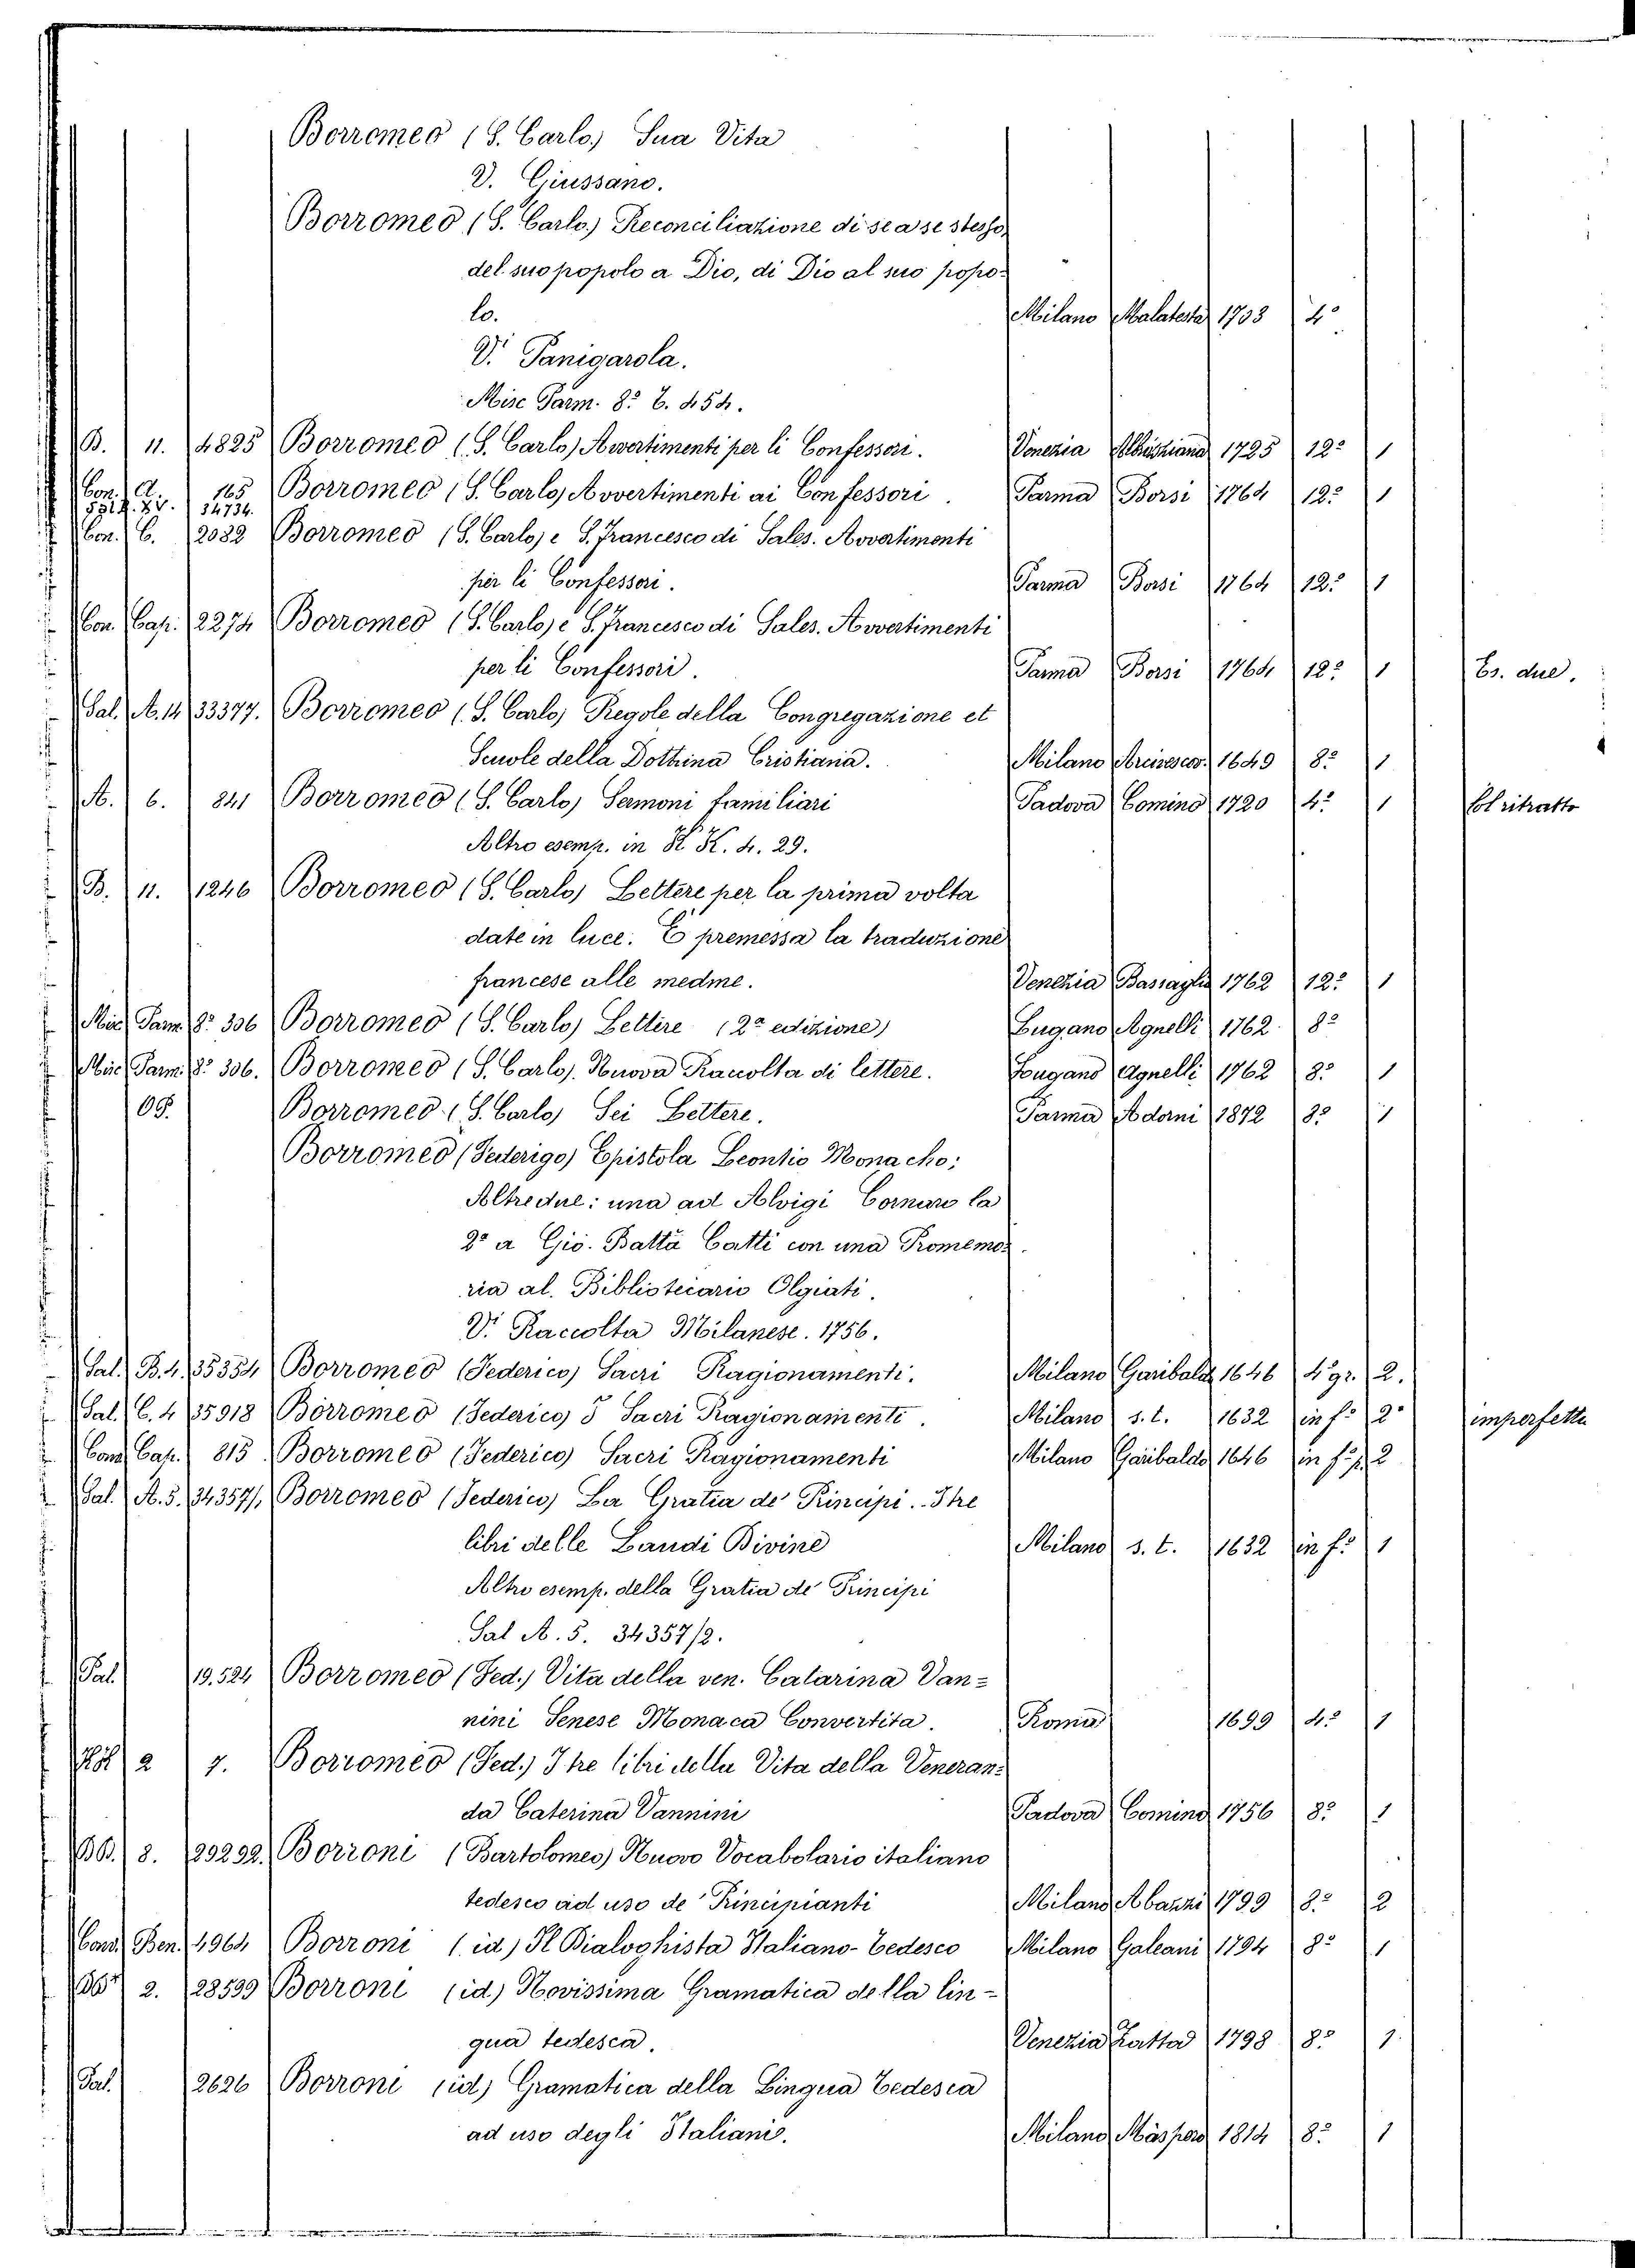 Borromeo (S. Carlo) Sua Vita
V. Giussano.
Borromeo (S. Carlo) Reconciliazione di se a se stesso,
del suo popolo a Dio, di Dio al suo popo-
lo. Milano Malatesta 1703 4º
V. Panigarola.
Misc Parm. 8º b. 454.
B. 11. 4825 Borromeo (S. Carlo) Avvertimenti per li Confessori. Venezia 1725 12º 1
Con. A. 165 Borromeo (S. Carlo) Avvertimenti ai Confessori. Parma Borsi 1764 12º 1
34734.
Con. C. 2082 Borromeo (S. Carlo) e S. Francesco di Sales. Avvertimenti
per li Confessori. Parma Borsi 1764 12º 1
Con. Cap. 2274 Borromeo (S. Carlo) e S. Francesco di Sales. Avvertimenti
per li Confessori. Parma Borsi 1764 12º 1 Es. due.
Sal. A. 14 33377. Borromeo (S. Carlo) Regole della Congregazione et
Scuole della Dottrina Cristiana. Milano Arcivescov. 1649 8º 1
A. 6. 841 Borromeo (S. Carlo) Sermoni familiari Padova Comino 1720 4º 1 Col ritratto
Altro esemp. in K. K. 4. 29.
B. 11. 1246 Borromeo (S. Carlo) Lettere per la prima volta
date in luce. È premessa la traduzione
francese alle medme. Venezia Bassaglia 1762 12º 1
Misc Parm. 8º 306 Borromeo (S. Carlo) Lettere (2ª edizione) Lugano Agnelli 1762. 8º
Misc Parm. 8º 306. Borromeo (S. Carlo). Nuova Raccolta di lettere. Lougano Agnelli 1762 8º 1
Borromeo (S. Carlo) Sei Lettere. Parma Adorni 1872 8º 1
Borromeo (Federigo) Epistola Leontio Monacho;
Altre due: una ad Alvigi Cornaro la
2ª a Gio. Batta Catti con una Promemo-
ria al. Bibliotecario Olgiati.
V. Raccolta Milanese. 1756.
Sal. B. 4. 35354 Borromeo (Federico) Sacri Ragionamenti. Milano Garibaldi 1646 4º gr. 2.
Sal. C. 4 35918 Borromeo (Federico) I Sacri Ragionamenti. Milano s. t. 1632 in fº 2º imperfetto
Con. Cap. 815 Borromeo (Federico) Sacri Ragionamenti Milano Garibaldo 1646 in fº p. 2
Sal. A. 5. 34357/1 Borromeo (Federico) La Gratia de' Principi. I tre
libri delle Laudi Divine Milano s. t. 1632 in fº 1
Altro esemp. della Gratia de' Principi
Sal A. 5. 34357/2.
Pal. 19.524 Borromeo (Fed.) Vita della ven. Catarina Van-
nini Senese Monaca Convertita. Roma 1699 4º 1
2 7. Borromeo (Fed.) I tre libri della Vita della Veneran-
da Caterina Vannini Padova Comino 1756 8º 1
BB. 8. 29292. Borroni (Bartolomeo) Nuovo Vocabolario italiano
tedesco ad uso de' Principianti Milano Abazzi 1799 8º 2
Cons. Ben. 4964 Borroni (id.) Il Dialoghista Italiano-Tedesco Milano Galeani 1794 8º 1
2. 28599 Borroni (id.) Novissima Gramatica della lin-
gua tedesca. Venezia Zatta 1798 8º 1
Pal. 2626 Borroni (id.) Gramatica della Lingua Tedesca
ad uso degli Italiani. Milano Maspero 1814 8º 1